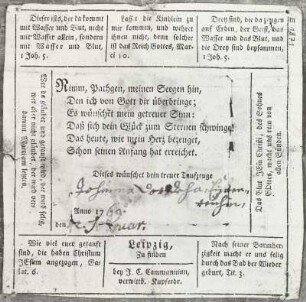 Dieser ists, der da kommt
mit Wasser und Blut, nicht
mit Wasser allein, sondern
mit Wasser und Blut,
1 Joh. 5.
Lasst die Kindlein zu
mir kommen, und wehret
ihnen nicht, denn solcher
ist das Reich Gottes, Marc.
10.
Drey sind, die da zeugen
auf Erden, der Geist, das
Wasser und das Blut, und
die Drey sind beysammen,
1 Joh. 5.
Wer da glaubet und getauft wird, der wird selig,
wer aber nicht glaubet, der wird ver-
dammt
Nimm, Pathgen, meinen Seegen hin,
Den ich von Gott dir überbringe;
Es wünschet mein getreuer Sinn:
Daß sich dein Glück zum Sternen schwinge!
Das heute, wie mein Herz bezeuget,
Schon seinen Anfang hat erreichet.
Dieses wünschet dein treuer Taufzeuge
Johann
Anno
den
Das Blut JEsu Christi, des Sohnes
GOttes, macht uns rein von
allen Sünden.
Wie viel euer getauft
sind, die haben Christum
JEsum angezogen, Ga-
lat.
Leipzig,
Zu finden
bey J. C.
verwitb. Kupferdr.
Nach seiner Barmher-
zigkeit macht er uns selig
durch das Bad der Wieder-
geburt, Tit. 3.